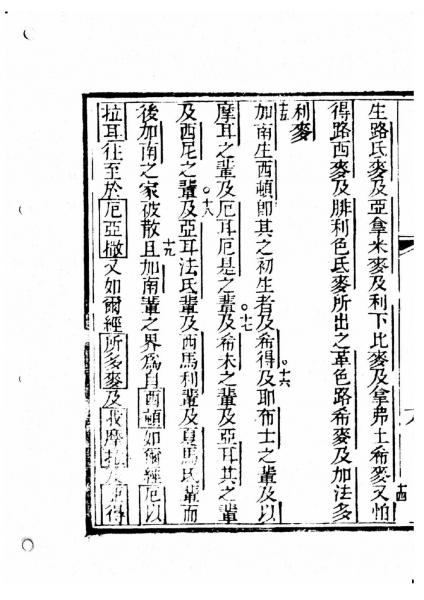 生路氏麥及亞拿米麥及利下比麥及拿弗土希麥十四又怕
得路西麥及腓利色氏麥所出之革色路希麥及加法多
利麥
十五加南生西頓即其之初生者及希得。十六及耶布士之輩及以
摩耳之輩及厄耳厄是之輩。十七及希未之輩及亞耳其之輩
及西尼之輩。十八及亞耳法氏輩及西馬利輩及夏馬氏輩而
後加南之家被散十九且加南輩之界為自西頓如爾經厄以
拉耳往至於厄亞撒又如爾經所多麥及我摩拉及亞得